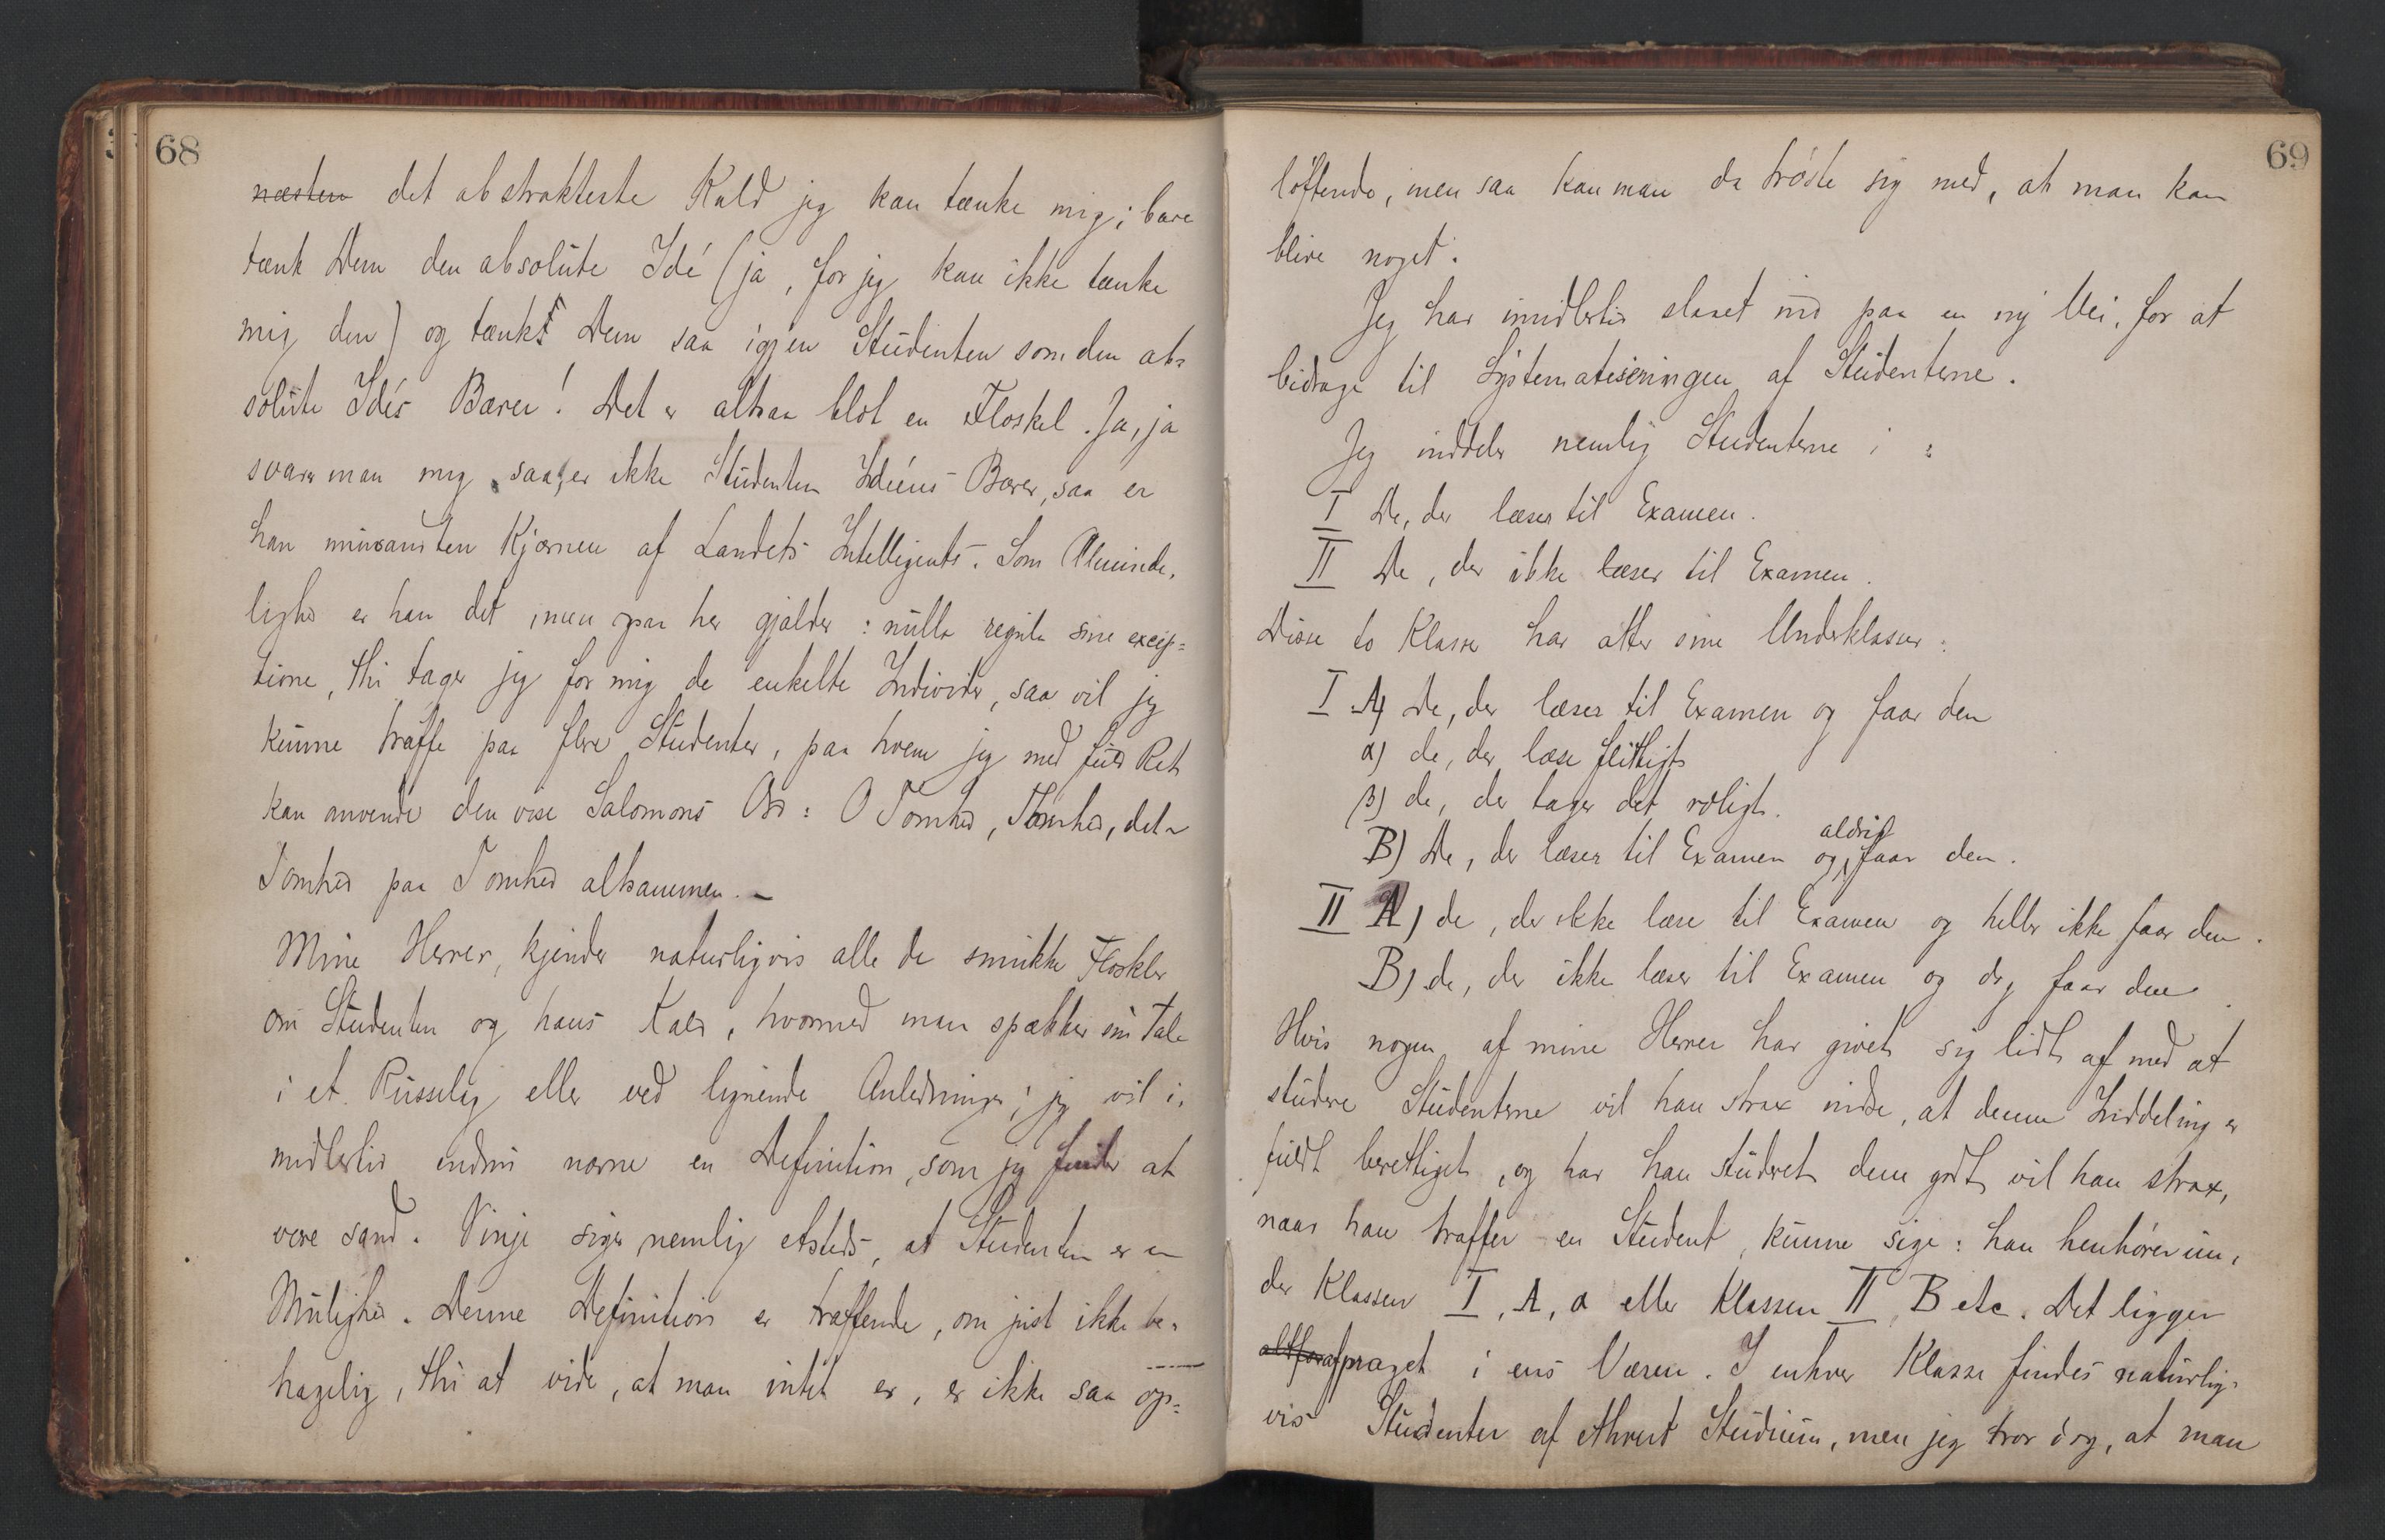 68
næsten det abstrakteste Kald jeg kan tænke mig; bare
tænk Dem den absolute Idé (ja, for jeg kan ikke tænke
mig den) og tænk Dem saa igjen Studenten som den ab=
solute Idés Bærer! Det er altsaa blot en Floskel. Ja, ja
svarer man mig, saa, er ikke Studenten Ideens Bærer, saa er
han minsandten Kjærnen af Landets Intelligents. Som Alminde=
lighed er han det, men paa her gjælder: nulla regula sine excep=
tione, thi tager jeg for mig de enkelte Individer, saa vil jeg
kunne træffe paa flere Studenter, paa hvem jeg med fuld Ret
kan anvende den vise Salomons Ord: O Tomhed, Tomhed, det er
Tomhed paa Tomhed altsammen. –
Mine Herrer, kjender naturligvis alle de smukke Floskler
om Studenten og hans Kald, hvormed man spækker sin Tale
i et Russelag eller ved lignende Anledninger; jeg vil i=
midlertid endnu nævne en Definition, som jeg finder at
være sand. Vinje siger nemlig etsteds, at Studenten er en
Mulighed. Denne Definition er træffende, om just ikke be=
hagelig, thi at vide, at man intet er, er ikke saa op=
69
løftende, men saa kan man da trøste sig med, at man kan
blive noget.
Jeg har imidlertid slaaet ind paa en ny Vei, for at
bidrage til Systematiseringen af Studenterne.
Jeg inddeler nemlig Studenterne i :
I De, der læser til Examen.
II De, der ikke læser til Examen.
Disse to Klasser har atter sine Underklasser:
I A) De, der læser til Examen og faar den
α) de, der læse flittigt
β) de, der tager det roligt.
B) De, der læser til Examen og aldrig faar den.
II A) de, der ikke læse til Examen og heller ikke faar den.
B) de, der ikke læser til Examen og dog faar den.
Hvis nogen af mine Herrer har givet sig lidt af med at
studere Studenterne vil han strax indse, at denne Inddeling er
fuldt berettiget, og har han studeret dem godt vil han strax,
naar han træffer en Student, kunne sige: han henhører un=
der Klassen I, A, α eller Klassen II, B etc. Det ligger
altfor afpræget i ens Væsen. I enhver Klasse findes naturlig=
vis Studenter af ethvert Studium, men jeg tror dog, at man